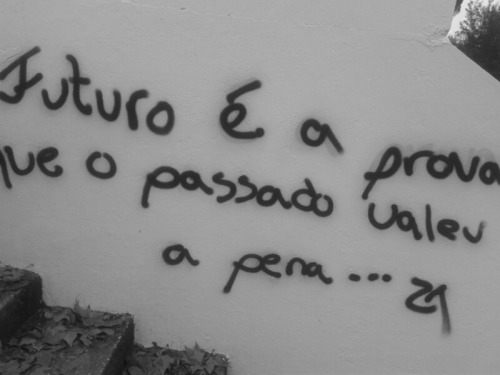 Futuro é a prova
que o passado valeu
a pena... 21